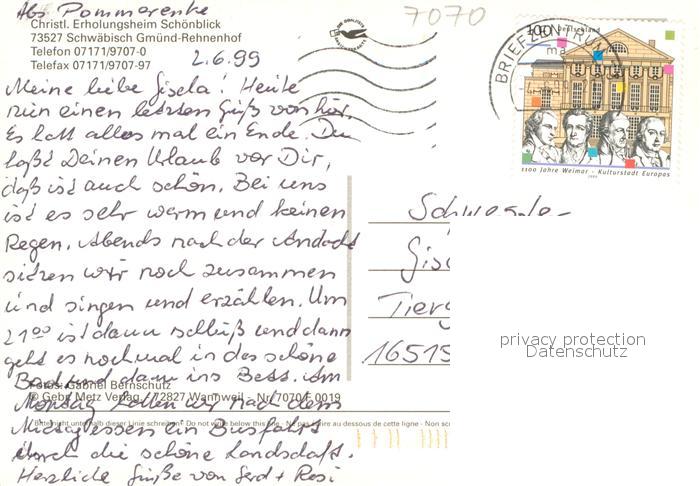 Abs. Pommerenke
Christl. Erholungsheim Schönblick
73527 Schwäbisch Gmünd-Rehnenhof
Telefon 07171/9707-0
Telefax 07171/9707-97
2.6.99
Meine liebe Gisela! Heute
nun einen letzten Gruß von hier.
Es hat alles mal ein Ende. Du
hast Deinen Urlaub vor Dir,
daß ist auch schön. Bei uns
ist es sehr warm und keinen
Regen. Abends nach der Andacht
sitzen wir noch zusammen
und singen und erzählen. Um
21⁰⁰ ist dann schluß und dann
geht es nochmal in das schöne
Bad und dann ins Bett. Am
Montag hatten wir nach dem
Mittagessen ein Busfahrt
durch die schöne Landschaft.
Herzliche Grüße von Gerd + Resi
Fotos: Gabriel Bernschutz
© Gebr. Metz Verlag 72827 Wannweil Nr. 7070 F 0019
Bitte nicht unterhalb dieser Linie schreiben Do not write below this Ne pas écrire au dessous de cette ligne - Non scr
7070
BRIEFZENTRUM
100 Deutschland
1100 Jahre Weimar - Kulturstadt Europas
1999
Schwester
Gis
Tierg
16515
privacy protection
Datenschutz